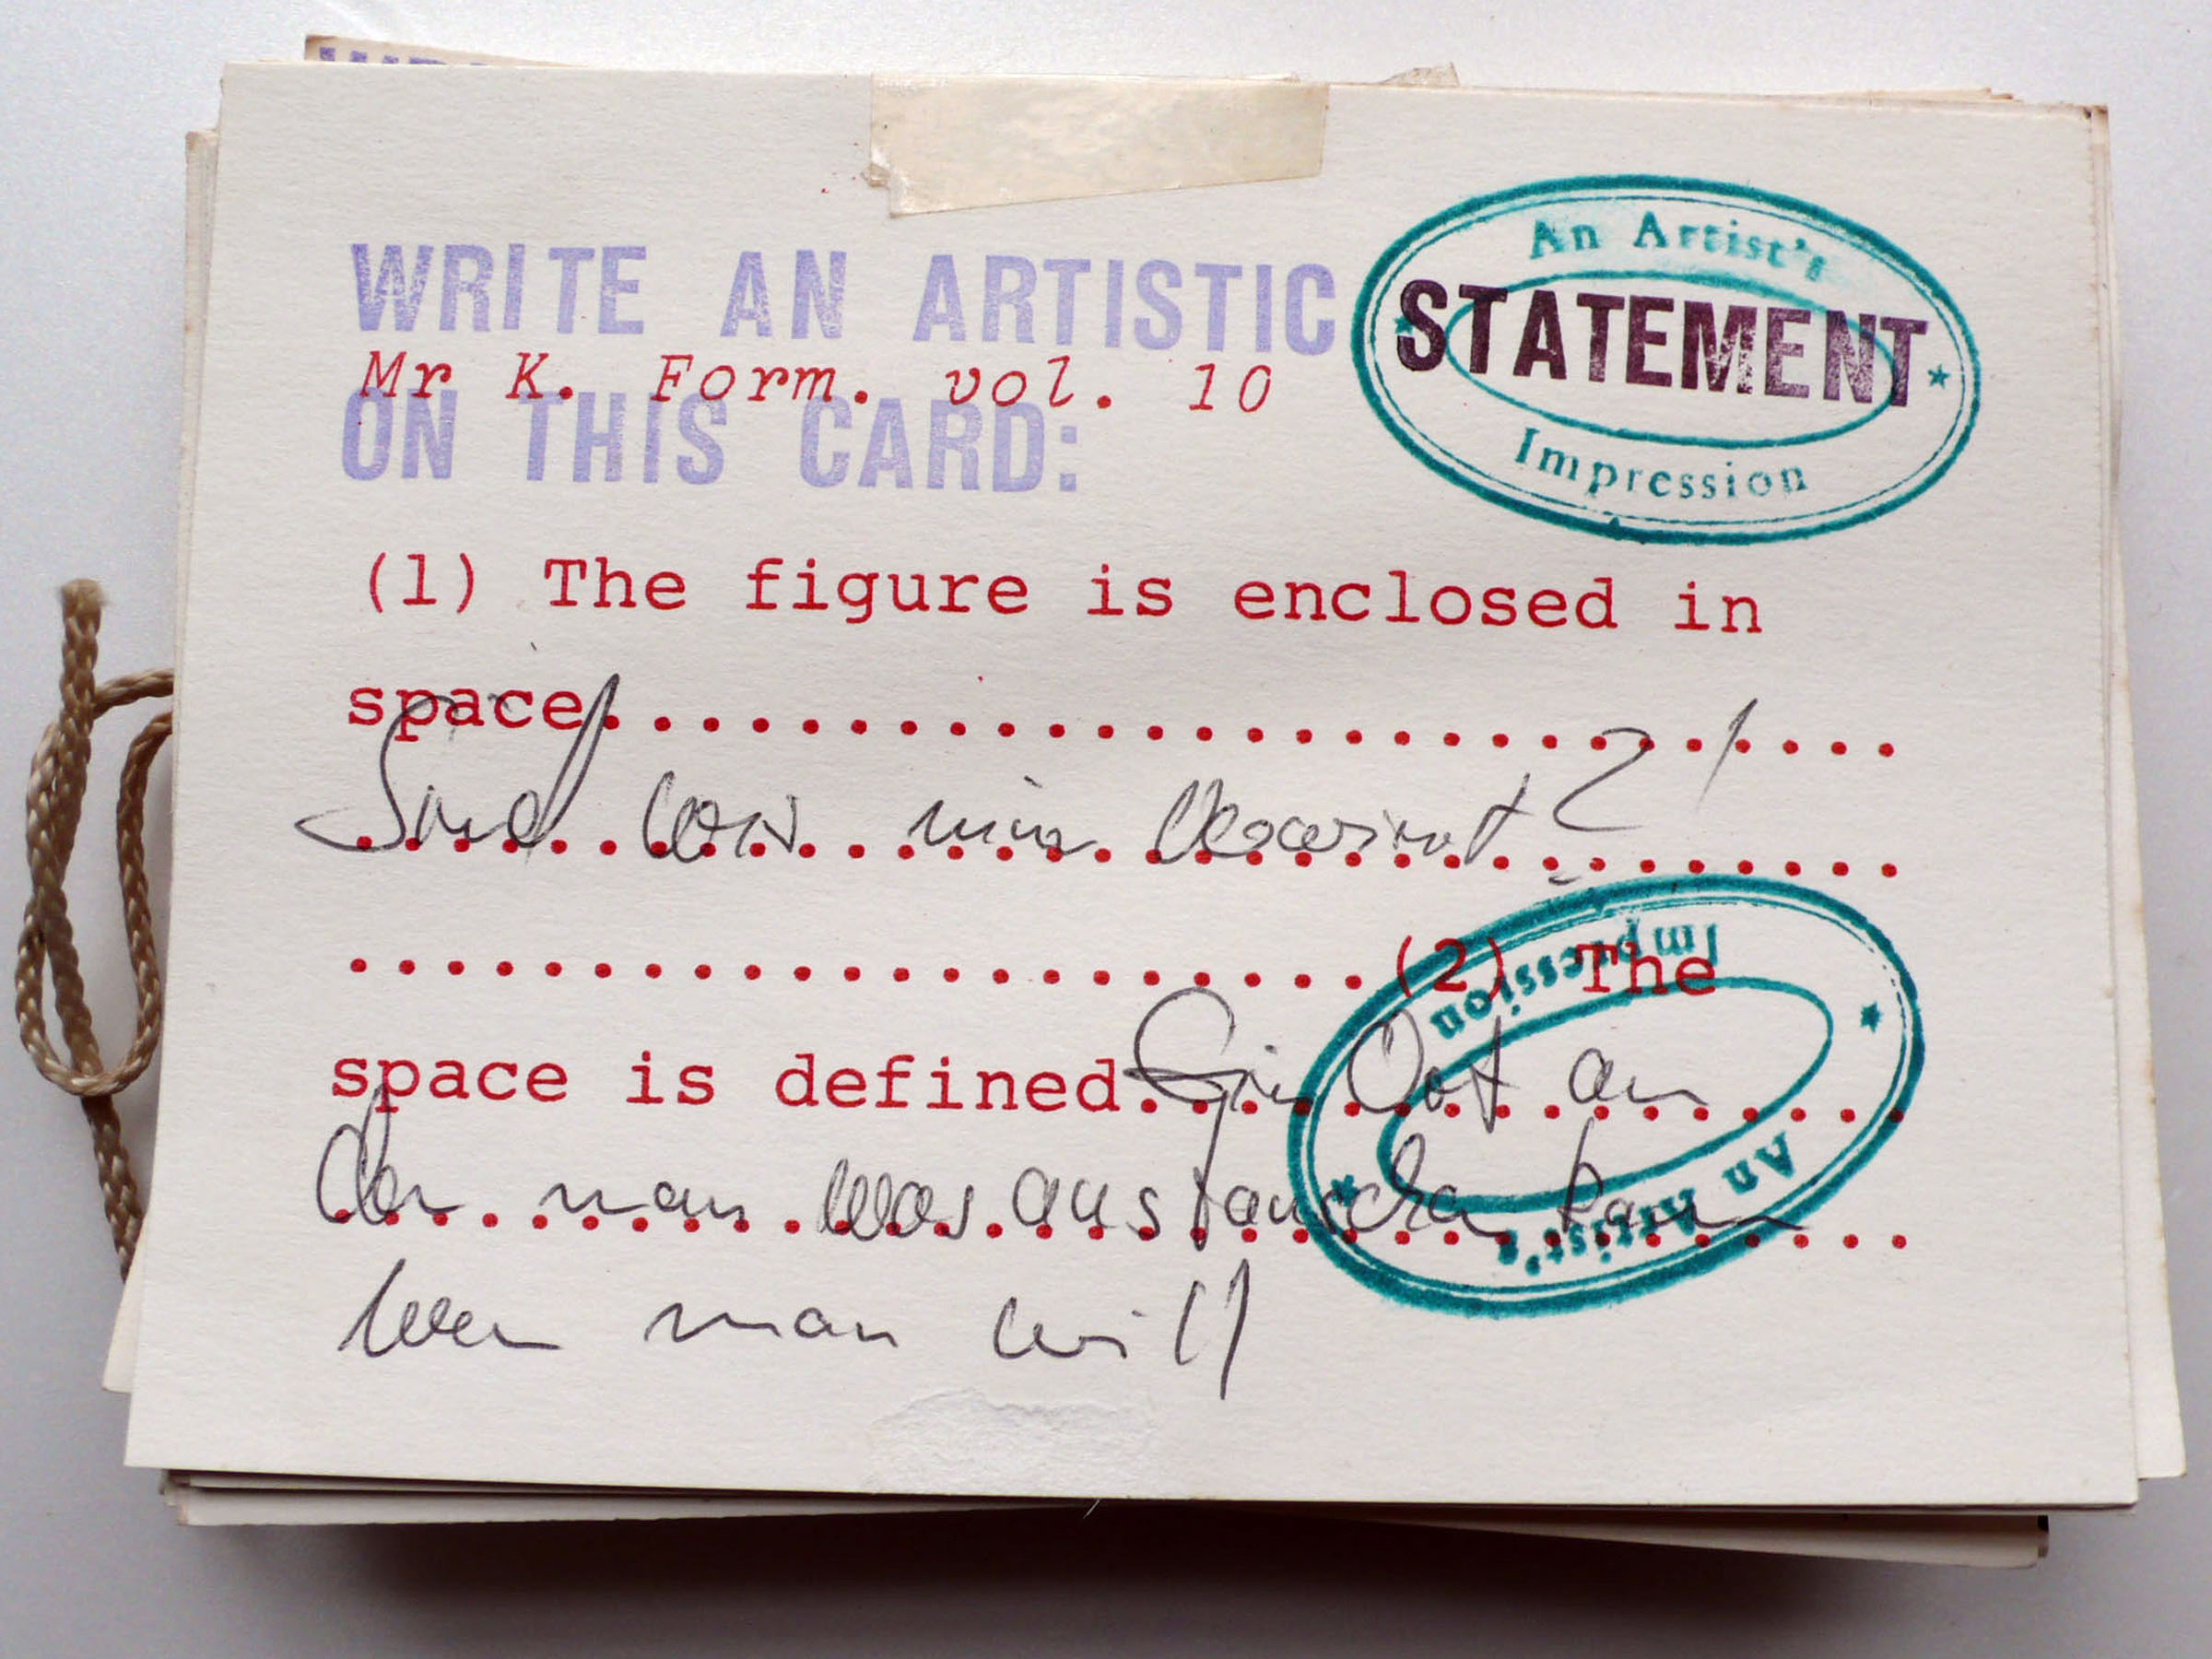 WRITE AN ARTISTIC
An Artist's
STATEMENT
Impression
Mr K. Form. vol. 10
ON THIS CARD:
(1) The figure is enclosed in
space..............................
Sind wir nun verwirrt?!
.....................(2) The
Impression
space is defined. Ein Ort an
An Artist's
den man was austauschen kann
wen man will